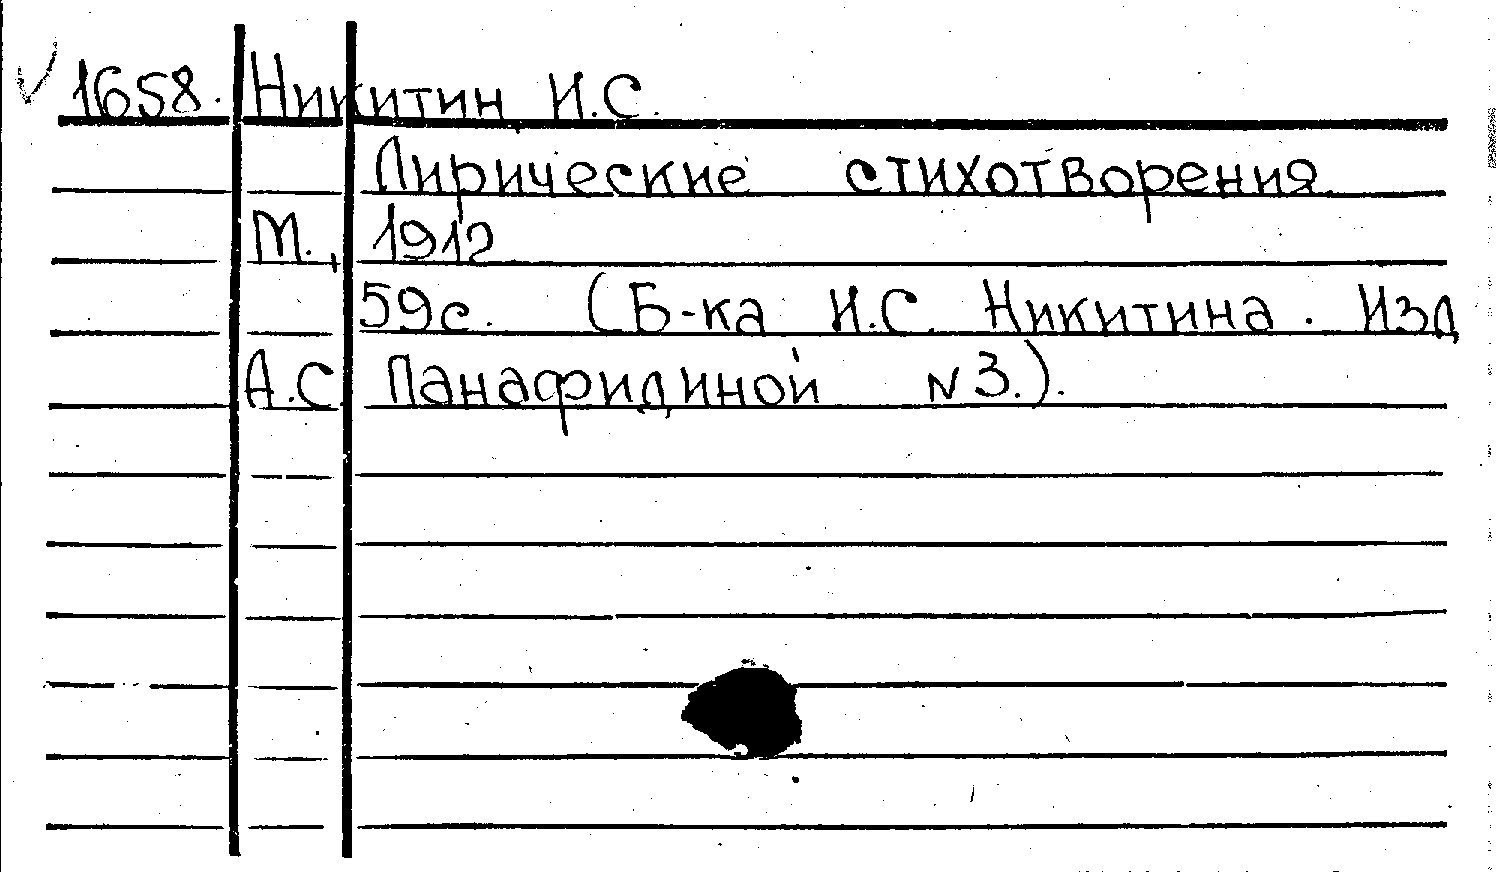 1658. Никитин И.С.
Лирические стихотворения.
М., 1912
59с. (Б-ка И.С. Никитина. Изд
А.С. Панафидиной N3.).